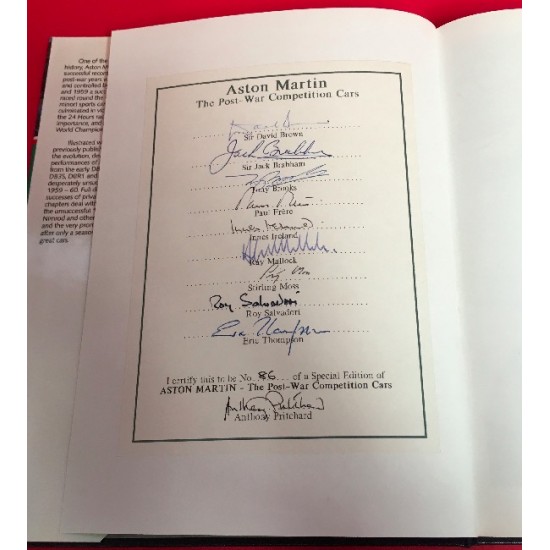 One of the
history, Aston M
successful recor
post-war years w
and controlled b
and 1959 a suc
raced round the
minori sports ca
culminated in vi
the 24 Hours rac
importance, and
World Champion
Illustrated w
previously publish
the evolution, de
performances of
from the early DB
DB3S, DBR1 and
desperately unsu
1959 - 60. Full d
successes of priva
chapters deal with
the unsuccessful
Nimrod and othe
and the very pron
after only a seaso
great cars.
Aston Martin
The Post-War Competition Cars
Sir David Brown
Jack Brabham
Sir Jack Brabham
Tony Brooks
Paul Frère
Innes Ireland
Innes Ireland
Ray Mallock
Stirling Moss
Roy Salvadori
Roy Salvadori
Eric Thompson
Eric Thompson
I certify this to be No. 86 ... of a Special Edition of
ASTON MARTIN - The Post-War Competition Cars
Anthony Pritchard
Anthony Pritchard